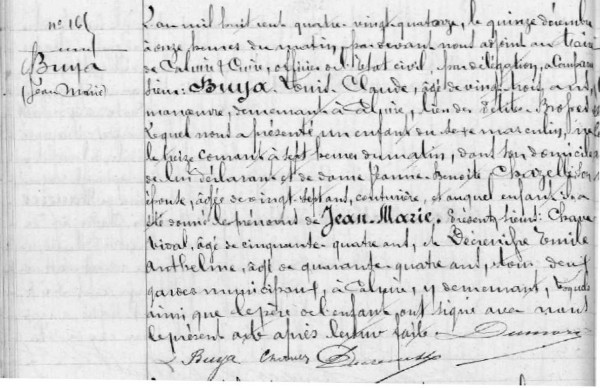 n° 165
Buya
(Jean Marie)
L'an mil huit cent quatre vingt quatorze, le quinze décembre
à onze heures du matin, par devant nous adjoint au Maire
de Caluire & Cuire, officier de l'état civil, par délégation, a comparu
sieur Buya Louis Claude, âgé de vingt trois ans,
manœuvre, demeurant à Caluire, lieu des Petites Brosses
lequel nous a présenté un enfant du sexe masculin, né
le treize courant à sept heures du matin, dans son domicile
de lui déclarant et de dame Jeanne Benoite Chazelle son
épouse, âgée de vingt sept ans, couturière, et auquel enfant il a
été donné le prénom de Jean Marie. Présents sieurs:
Vital, âgé de cinquante quatre ans, & Décrenisse Emile
Anthelme, âgé de quarante quatre ans, tous deux
gardes municipaux, à Caluire, y demeurant, lesquels
ainsi que le père de l'enfant, ont signé avec nous
le présent acte après lecture faite.
L Buya